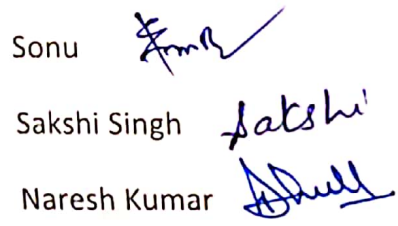 Sonu
Sakshi Singh Sakshi
Naresh Kumar